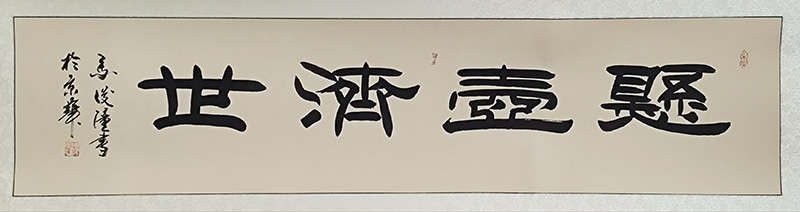 懸壺濟世
馬俊書
於京華